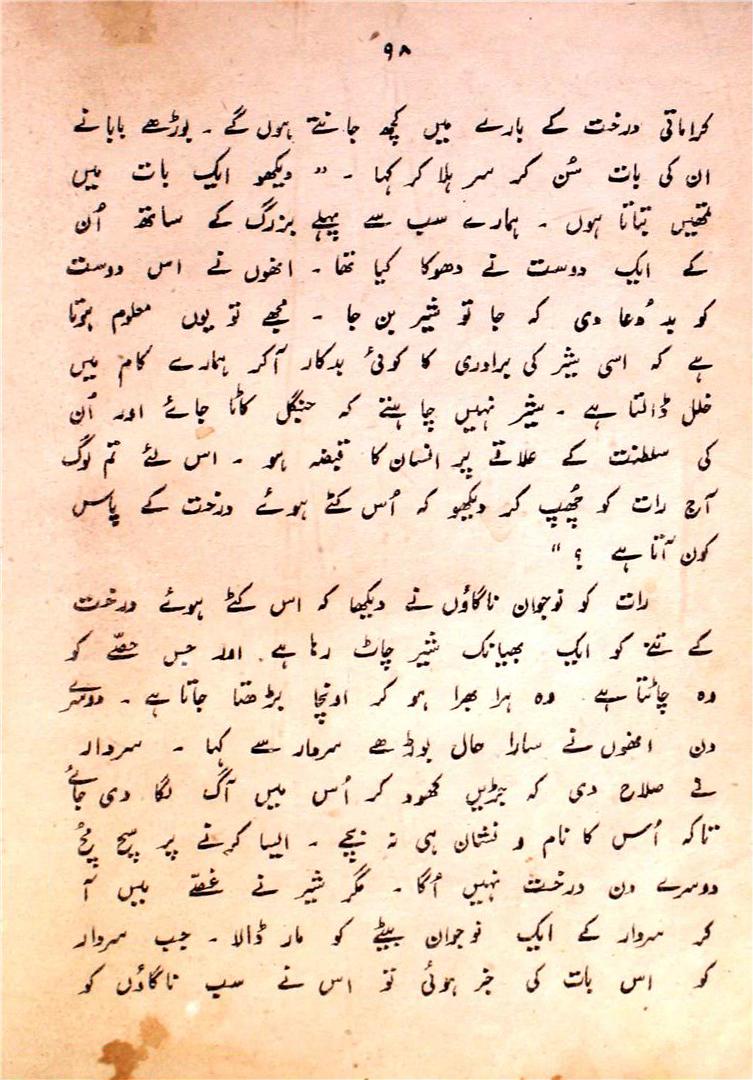 ۹۸
کراماتی درخت کے بارے میں کچھ جانتے ہوں گے ۔ بوڑھے بابا نے
ان کی بات سُن کر سر ہلا کر کہا ۔ " دیکھو ایک بات میں
تمھیں بتاتا ہوں ۔ ہمارے سب سے پہلے بزرگ کے ساتھ اُن
کے ایک دوست نے دھوکا کیا تھا ۔ انھوں نے اس دوست
کو بد دُعا دی کہ جا تو شیر بن جا ۔ مجھے تو یوں معلوم ہوتا
ہے کہ اسی شیر کی برادری کا کوئی بدکار آکر ہمارے کام میں
خلل ڈالتا ہے ۔ شیر نہیں چاہتے کہ جنگل کاٹا جائے اور اُن
کی سلطنت کے علاقے پر انسان کا قبضہ ہو ۔ اس لئے تم لوگ
آج رات کو چُھپ کر دیکھو کہ اُس کٹے ہوئے درخت کے پاس
کون آتا ہے ؟ "
رات کو نوجوان ناگاؤں نے دیکھا کہ اس کٹے ہوئے درخت
کے تنے کو ایک بھیانک شیر چاٹ رہا ہے اور جس حصّے کو
وہ چاٹتا ہے وہ ہرا بھرا ہو کر اونچا بڑھتا جاتا ہے ۔ دوسرے
دن انھوں نے سارا حال بوڑھے سردار سے کہا ۔ سردار
نے صلاح دی کہ جڑیں کھود کر اُس میں آگ لگا دی جائے
تاکہ اُس کا نام و نشان ہی نہ بچے ۔ ایسا کرنے پر سچ مُچ
دوسرے دن درخت نہیں اُگا ۔ مگر شیر نے غصّے میں آ
کر سردار کے ایک نوجوان بیٹے کو مار ڈالا ۔ جب سردار
کو اس بات کی خبر ہوئی تو اس نے سب ناگاؤں کو